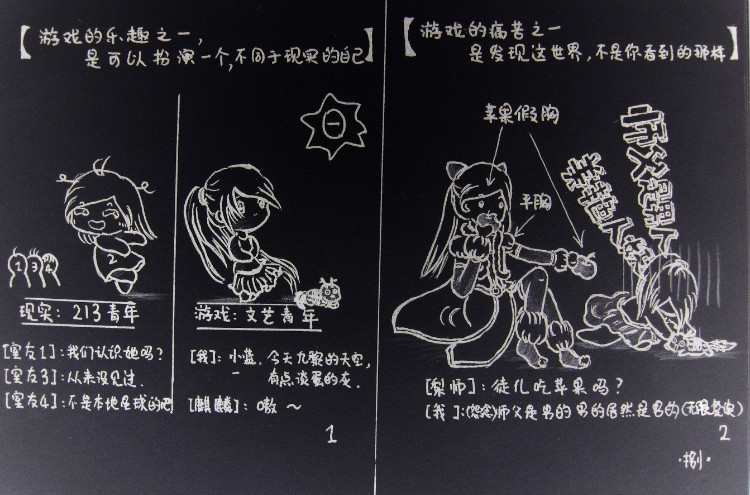 【游戏的乐趣之一,
是可以扮演一个,不同于现实的自己】
一
1 3 4
2
现实：213青年
[室友1]：我们认识她吗？
[室友3]：从来没见过.
[室友4]：不是本地星球的吧
游戏：文艺青年
[我]：小蓝，今天九黎的天空,
有点淡蛋的灰.
[麒麟]：嗷～
1
【游戏的痛苦之一
是发现这世界,不是你看到的那样】
苹果假胸
平胸
师父是男人
[梨师]：徒儿吃苹果吗？
[我]：(怨念)师父是男的男的居然是男的(无限复读)
2
·捌·